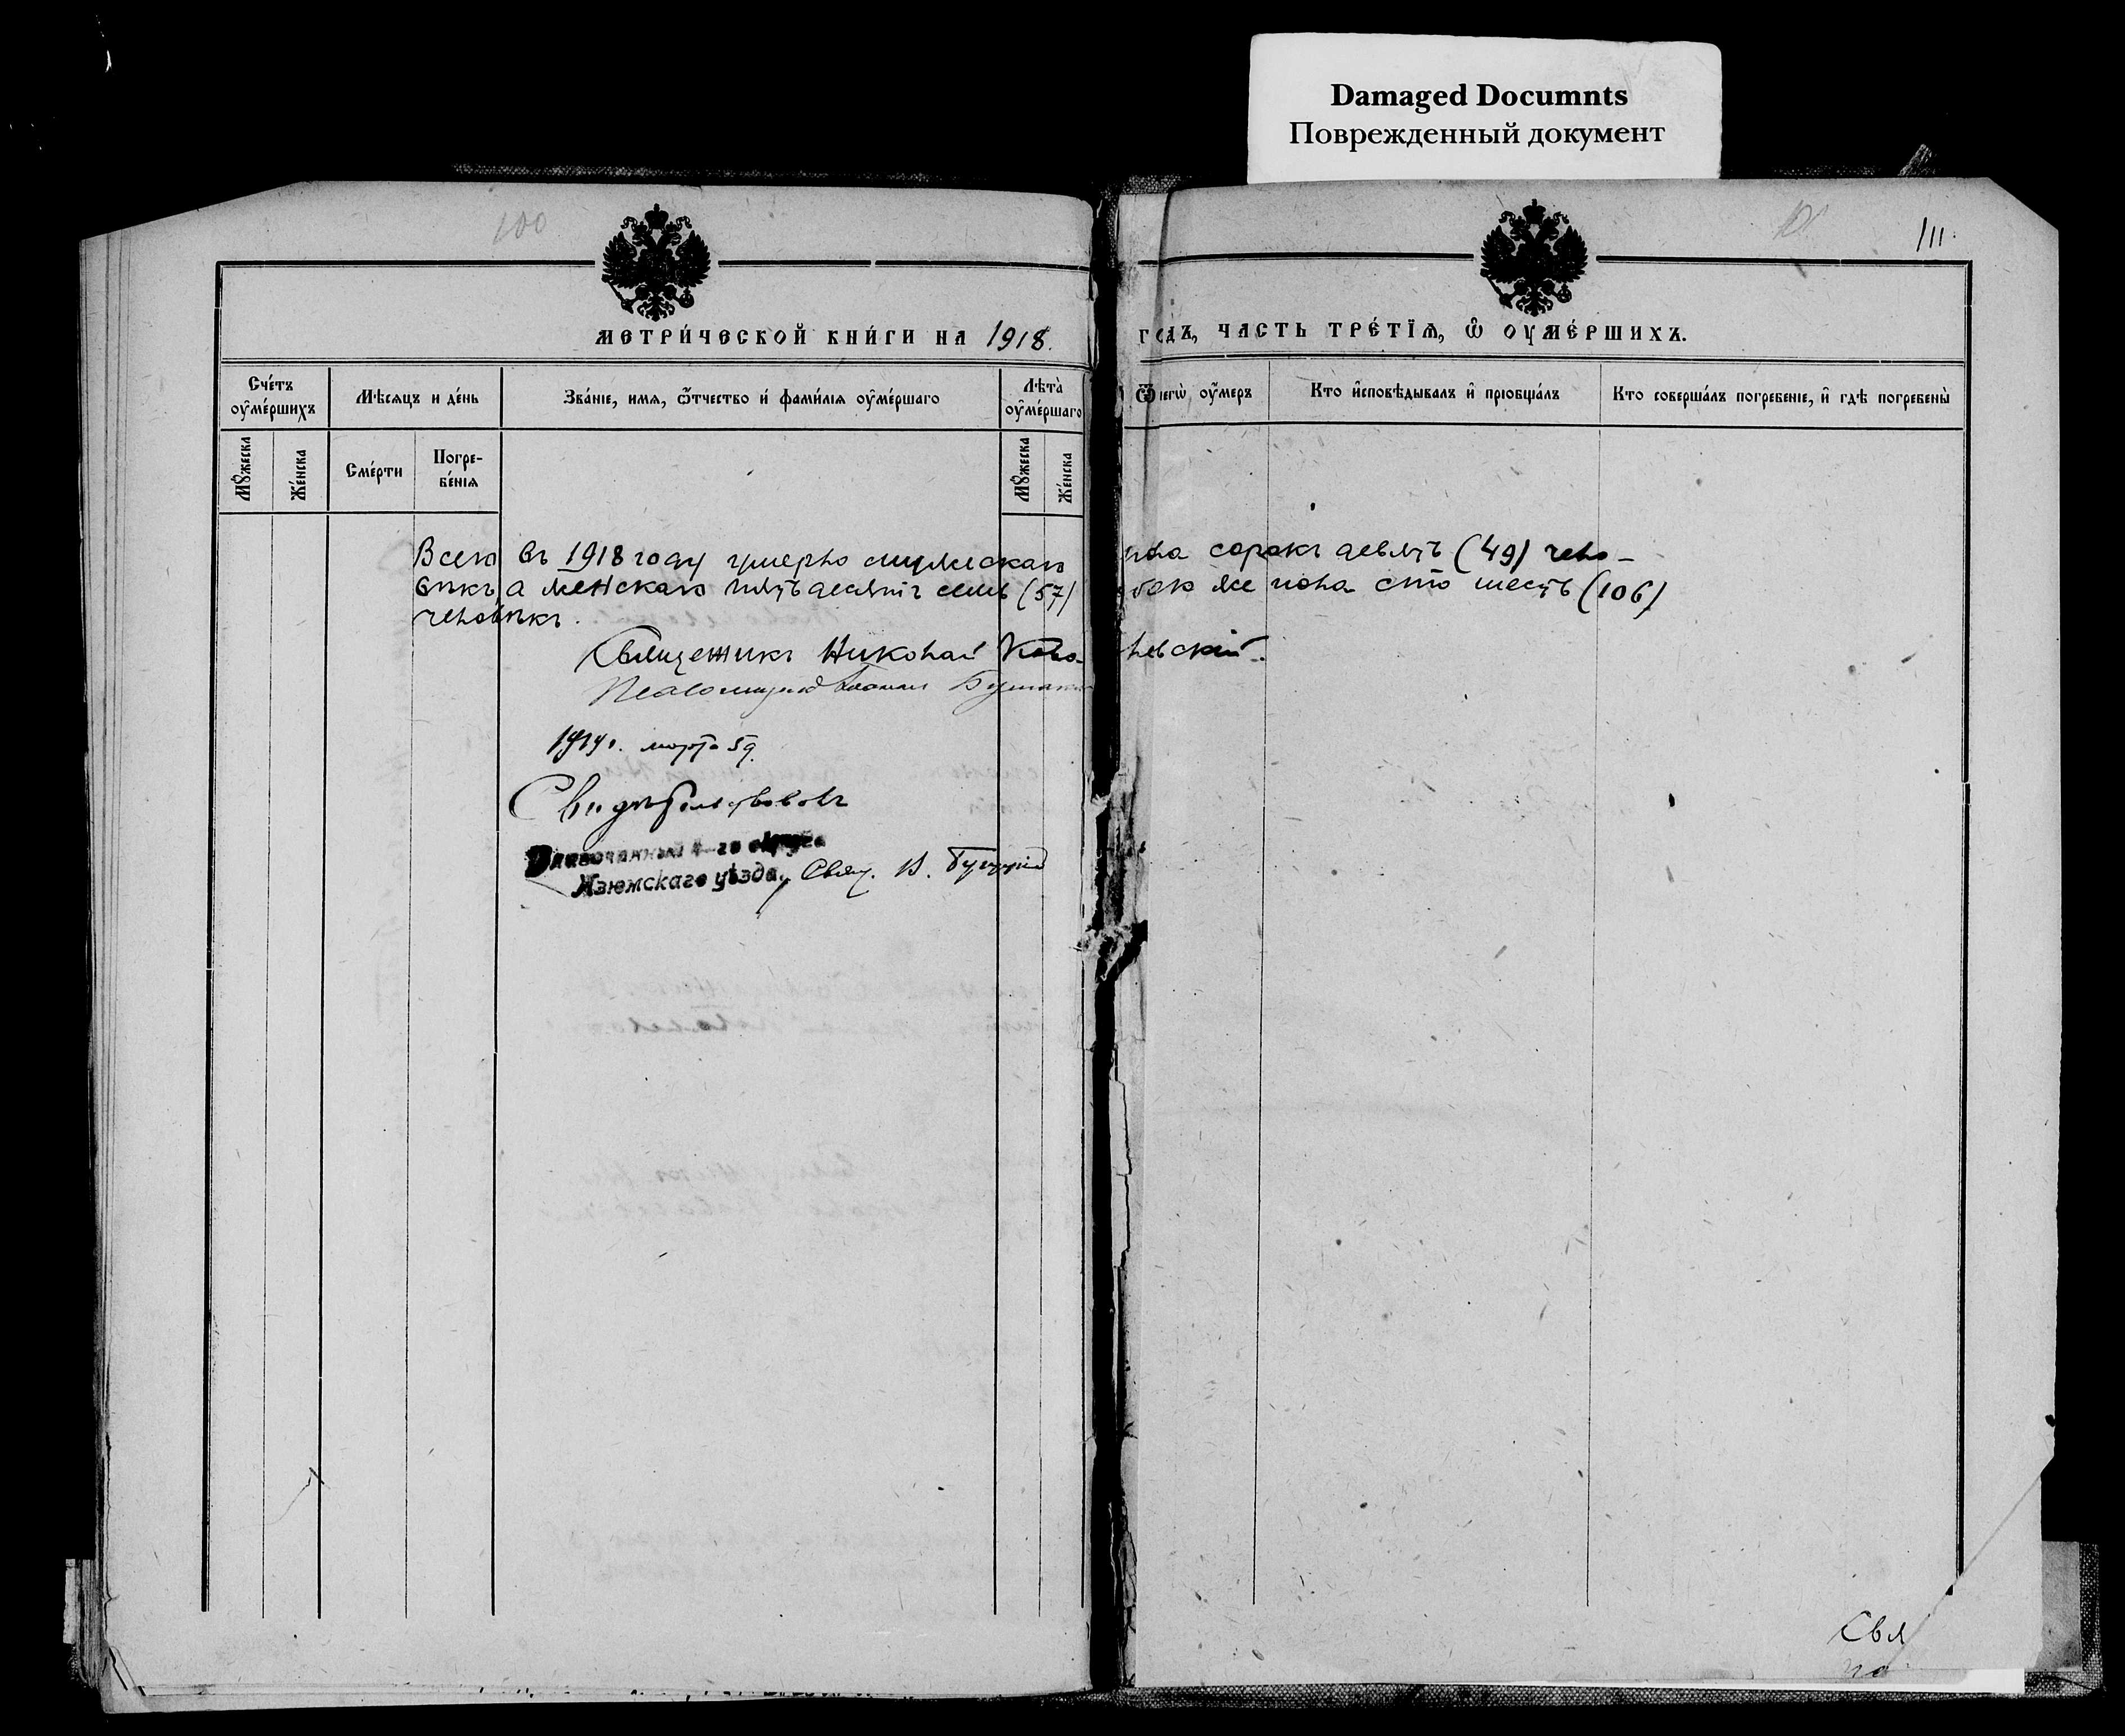 Damaged Documnts
Поврежденный документ
100
111.
МЕТРИ́ЧЕСКОЙ КНИ́ГИ НА 1918. ГОДЪ, ЧАСТЬ ТРЕ́ТЇѦ, Ѡ҆ ОУМЕ́РШИХЪ.
Сче́тъ оу҆ме́ршихъ
Мѣсяцъ и де́нь
Зва́нїе, имя, ѿтчество и҆ фами́лїѧ оу҆ме́ршаго
Лѣта̀ оу҆ме́ршаго
Ѿ чегѡ̀ оу҆́меръ
Кто и҆сповѣ́дывалъ и҆ прїобща́лъ
Кто соверша́лъ погребенїе, и҆ гдѣ̀ погребены̀
Мꙋ́жеска
Же́нска
Сме́рти
Погре-бе́нїѧ
Мꙋ́жеска
Же́нска
Всего въ 1918 году умерло мужескаго пола сорокъ девять (49) чело-
вѣкъ, а женскаго пятьдесятъ семь (57) обего же пола сто шесть (106)
человѣкъ.
Священникъ Николай Ковалевскій.
Псаломщикъ
1919 г. марта 5 д.
Свидѣтельствовалъ
Благочинный 4-го округа
Изюмскаго уѣзда, Свящ. В.
Свя